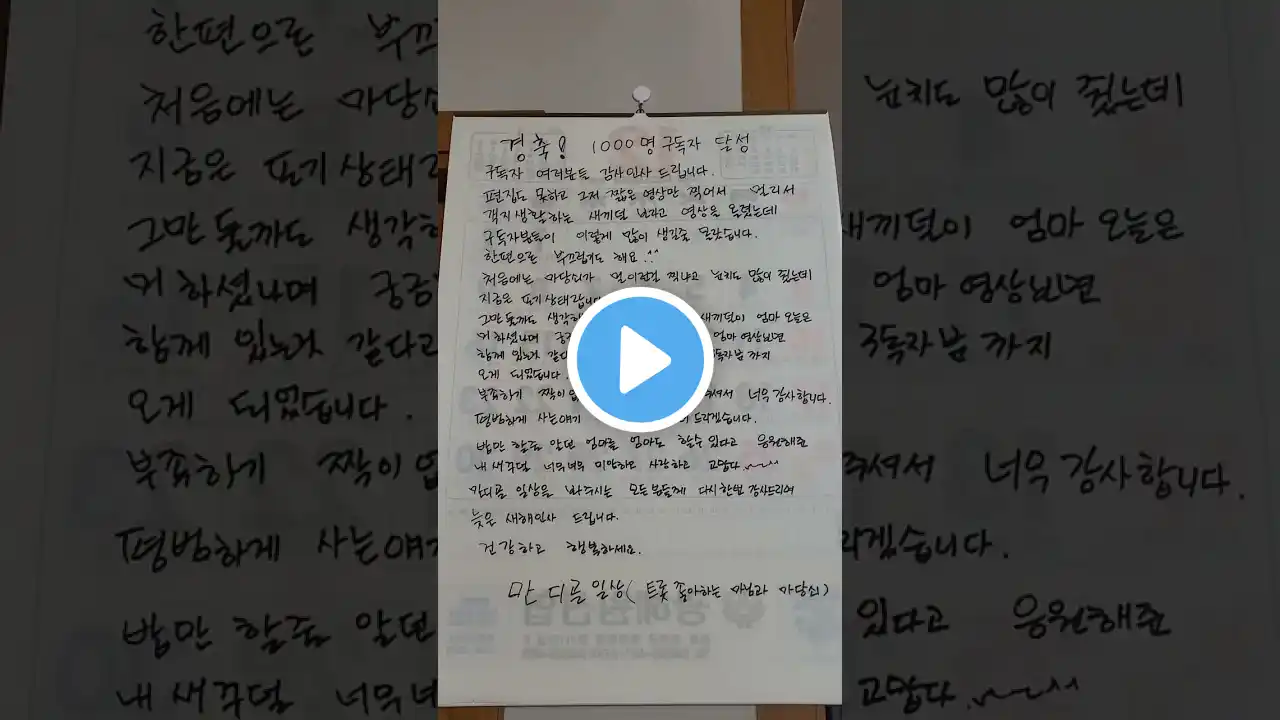 경축! 1000명 구독자 달성
구독자 여러분들 감사인사 드립니다.
편집도 못하고 그저 짧은 영상만 찍어서 멀리서
객지생활하는 새끼덜 보라고 영상을 올렸는데
구독자분들이 이렇게 많이 생길줄 몰랐습니다.
한편으론 부끄럽기도 해요.^^
처음에는 마당쇠가 멀 이런걸 찍냐고 눈치도 많이 줬는데
지금은 포기상태랍니다
그만둘까도 생각 새끼덜이 엄마 오늘은
머 하셨나며 궁금 엄마 영상보면
함께 있는거 같다고 구독자님 까지
오게 되었습니다.
부족하기 짝이 없 주셔서 너무 감사합니다.
평범하게 사는얘기 드리겠습니다.
밥만 할줄 알던 엄마를 엄마도 할수있다고 응원해준
내 새끼덜 너무너무 미안하고 사랑하고 고맙다.
만디골 일상을 봐주시는 모든분들께 다시한번 감사드리며
늦은 새해인사 드립니다.
건강하고 행복하세요.
만디골일상( 트롯 좋아하는 마님과 마당쇠)